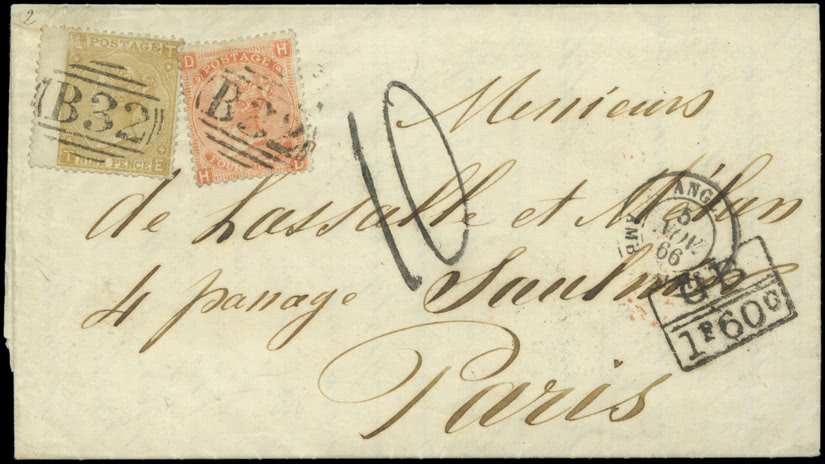 2
POSTAGE
T
B32
T NINE PENCE E
D POSTAGE H
B32
H FOUR D
10
Messieurs
de Lassalle et Mélan
4 passage Saulnier
Paris
ANG
5
NOV
66
AMB
GB
1F60c